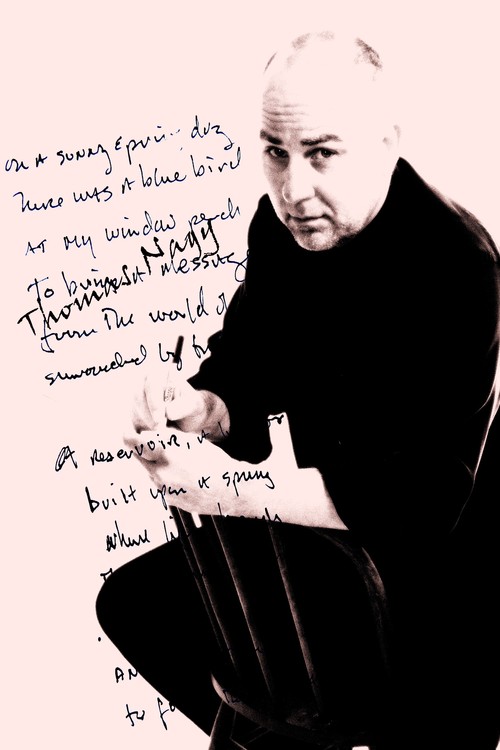 on A sunny spring day
There was A blue bird
AT my window perch
To bring A message
Thomas Nagy
from The world of
surrounded by
A reservoir, A
built upon A spring
where
AN
to